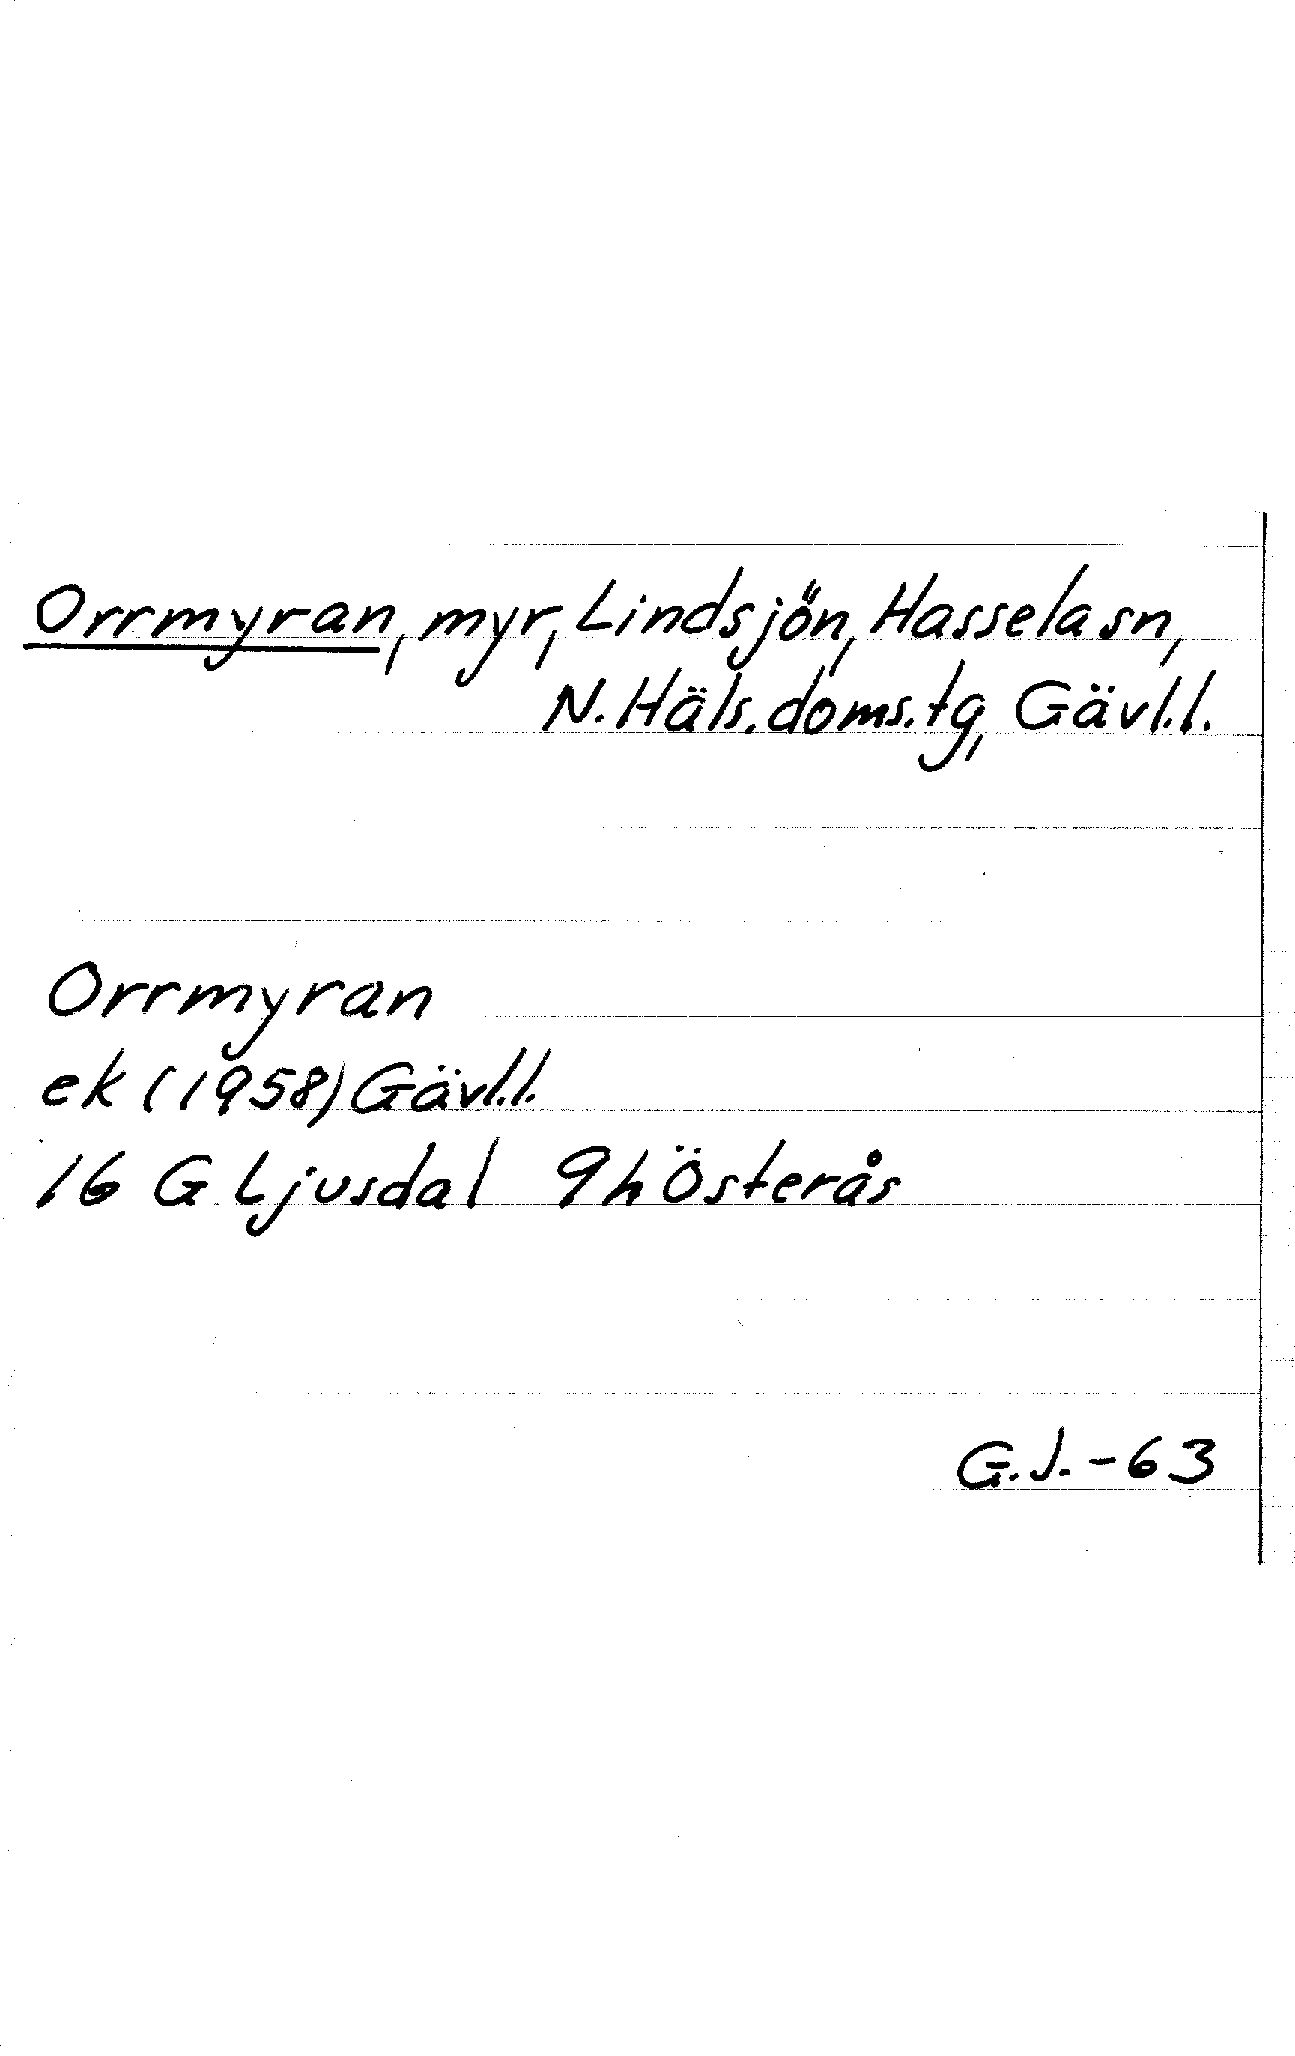 Orrmyran, myr, Lindsjön, Hassela sn,
N. Häls. doms. tg, Gävl. l.
Orrmyran
ek (1958) Gävl. l.
16 G Ljusdal 9h Österås
G.J. -63